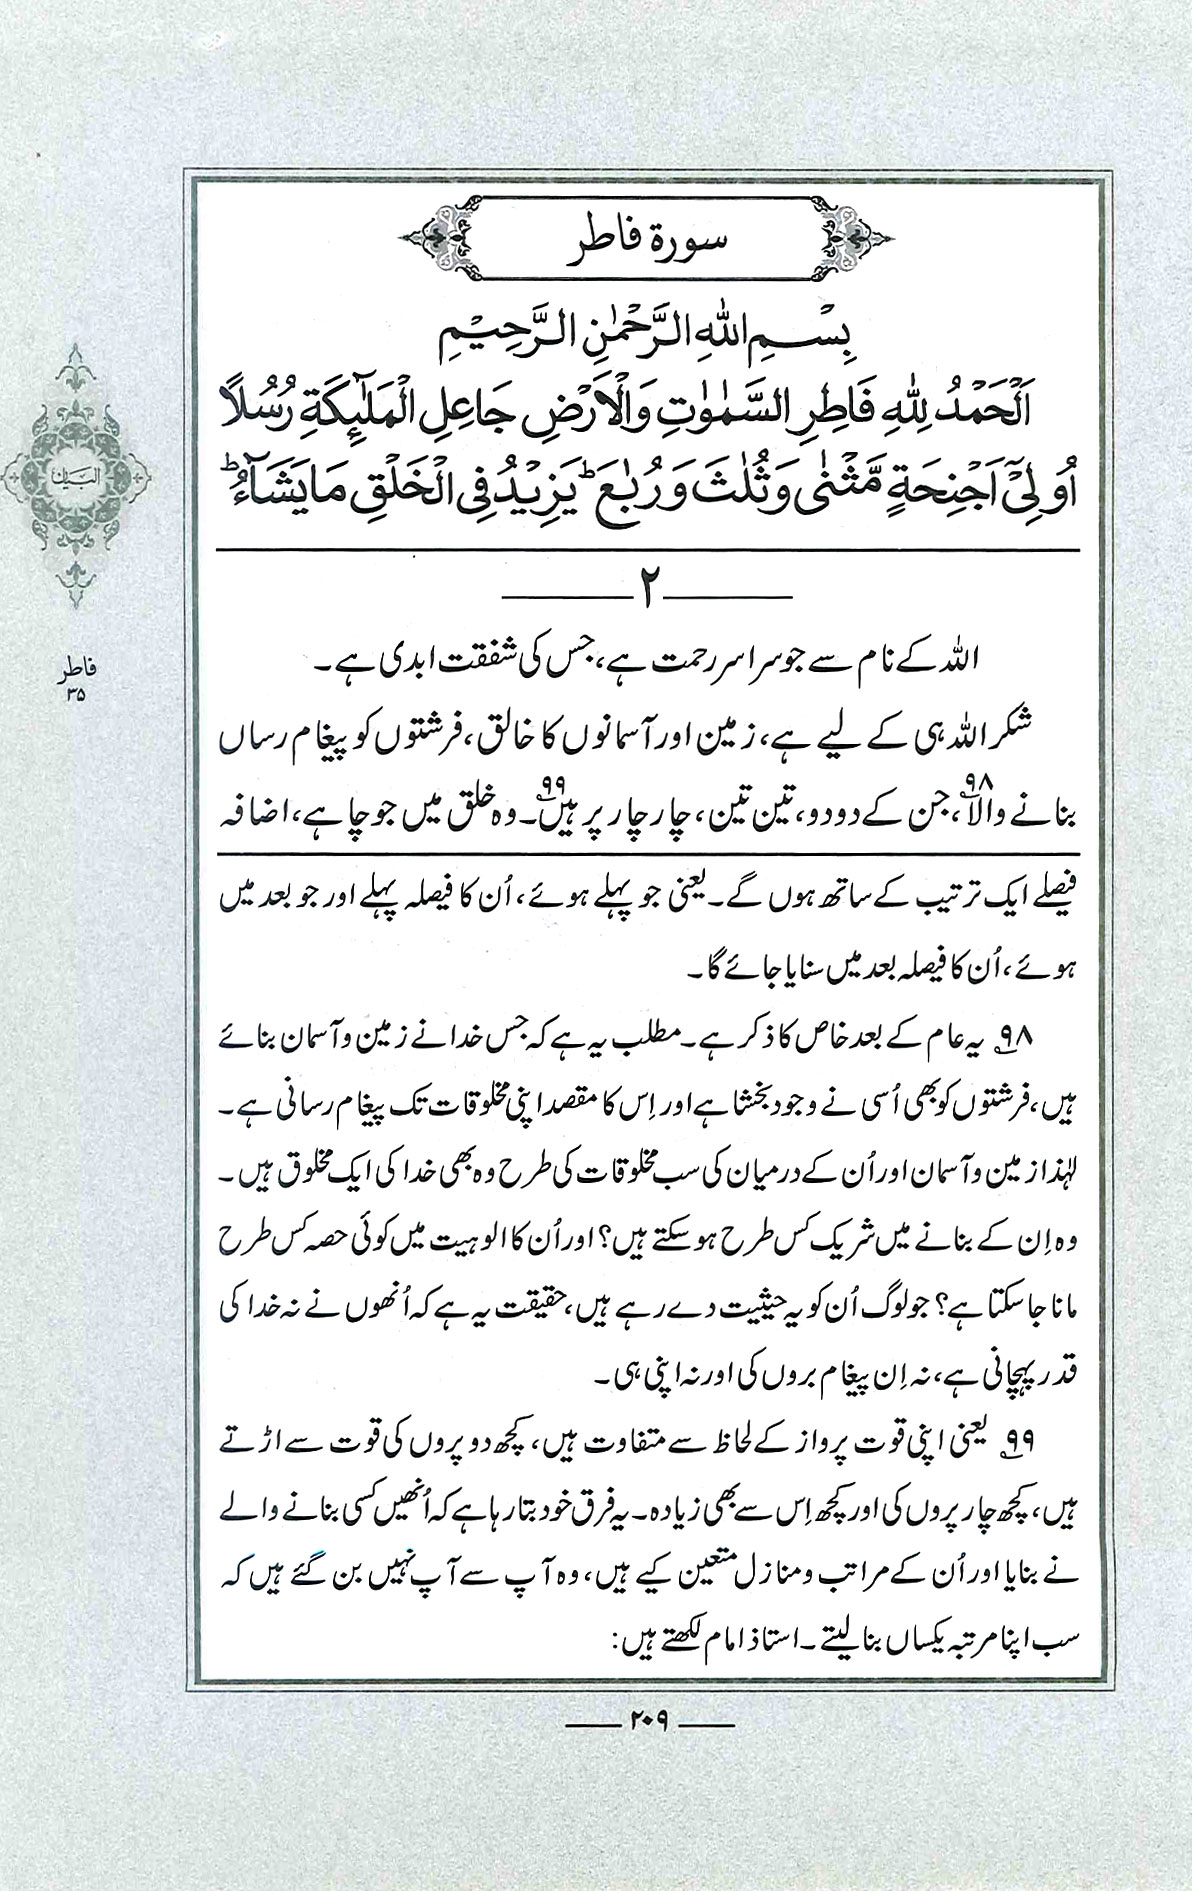 سورة فاطر
بِسْمِ اللهِ الرَّحْمٰنِ الرَّحِيْمِ
اَلْحَمْدُ لِلّٰهِ فَاطِرِ السَّمٰوٰتِ وَالْاَرْضِ جَاعِلِ الْمَلٰٓئِكَةِ رُسُلًا
اُولِیْٓ اَجْنِحَةٍ مَّثْنٰی وَثُلٰثَ وَرُبٰعَ ؕ یَزِیْدُ فِی الْخَلْقِ مَا یَشَآءُ ؕ
۲
اللہ کے نام سے جو سراسر رحمت ہے، جس کی شفقت ابدی ہے۔
شکر اللہ ہی کے لیے ہے، زمین اور آسمانوں کا خالق، فرشتوں کو پیغام رساں
بنانے والا۹۸، جن کے دو دو، تین تین، چار چار پر ہیں۹۹۔ وہ خلق میں جو چاہے، اضافہ
فیصلے ایک ترتیب کے ساتھ ہوں گے۔ یعنی جو پہلے ہوئے، اُن کا فیصلہ پہلے اور جو بعد میں
ہوئے، اُن کا فیصلہ بعد میں سنایا جائے گا۔
۹۸ یہ عام کے بعد خاص کا ذکر ہے۔ مطلب یہ ہے کہ جس خدا نے زمین و آسمان بنائے
ہیں، فرشتوں کو بھی اُسی نے وجود بخشا ہے اور اِس کا مقصد اپنی مخلوقات تک پیغام رسانی ہے۔
لہٰذا زمین و آسمان اور اُن کے درمیان کی سب مخلوقات کی طرح وہ بھی خدا کی ایک مخلوق ہیں۔
وہ اِن کے بنانے میں شریک کس طرح ہو سکتے ہیں؟ اور اُن کا الوہیت میں کوئی حصہ کس طرح
مانا جا سکتا ہے؟ جو لوگ اُن کو یہ حیثیت دے رہے ہیں، حقیقت یہ ہے کہ اُنھوں نے نہ خدا کی
قدر پہچانی ہے، نہ اِن پیغام بروں کی اور نہ اپنی ہی۔
۹۹ یعنی اپنی قوت پرواز کے لحاظ سے متفاوت ہیں، کچھ دو پروں کی قوت سے اڑتے
ہیں، کچھ چار پروں کی اور کچھ اِس سے بھی زیادہ۔ یہ فرق خود بتا رہا ہے کہ اُنھیں کسی بنانے والے
نے بنایا اور اُن کے مراتب و منازل متعین کیے ہیں، وہ آپ سے آپ نہیں بن گئے ہیں کہ
سب اپنا مرتبہ یکساں بنا لیتے۔ استاذ امام لکھتے ہیں:
۲۰۹
البیان
فاطر
۳۵